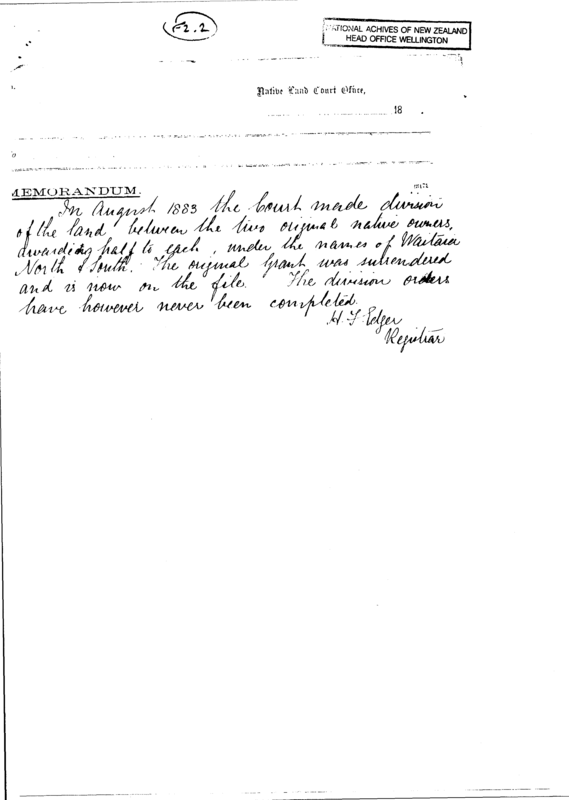 F2.2
NATIONAL ACHIVES OF NEW ZEALAND
HEAD OFFICE WELLINGTON
Native Land Court Office,
18 .
MEMORANDUM.
In August 1883 the Court made division
of the land, between the two original native owners,
awarding half to each, under the names of Waitaia
North & South. The original Grant was surrendered
and is now on the file. The division orders
have however never been completed.
Edger
Registrar